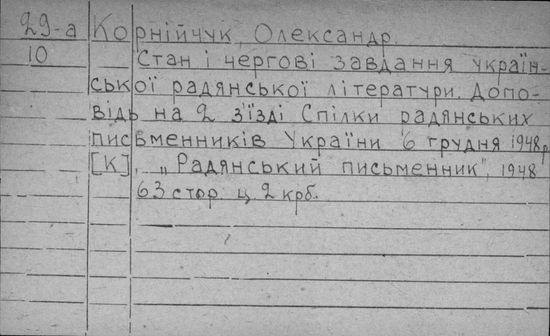 29-а Корнійчук, Олександр.
10 Стан і чергові завдання україн-
ської радянської літератури. Допо-
відь на 2 з'їзді Спілки радянських
письменників України 6 грудня 1948р
[К], „Радянський письменник", 1948
63 стор. ц. 2 крб.